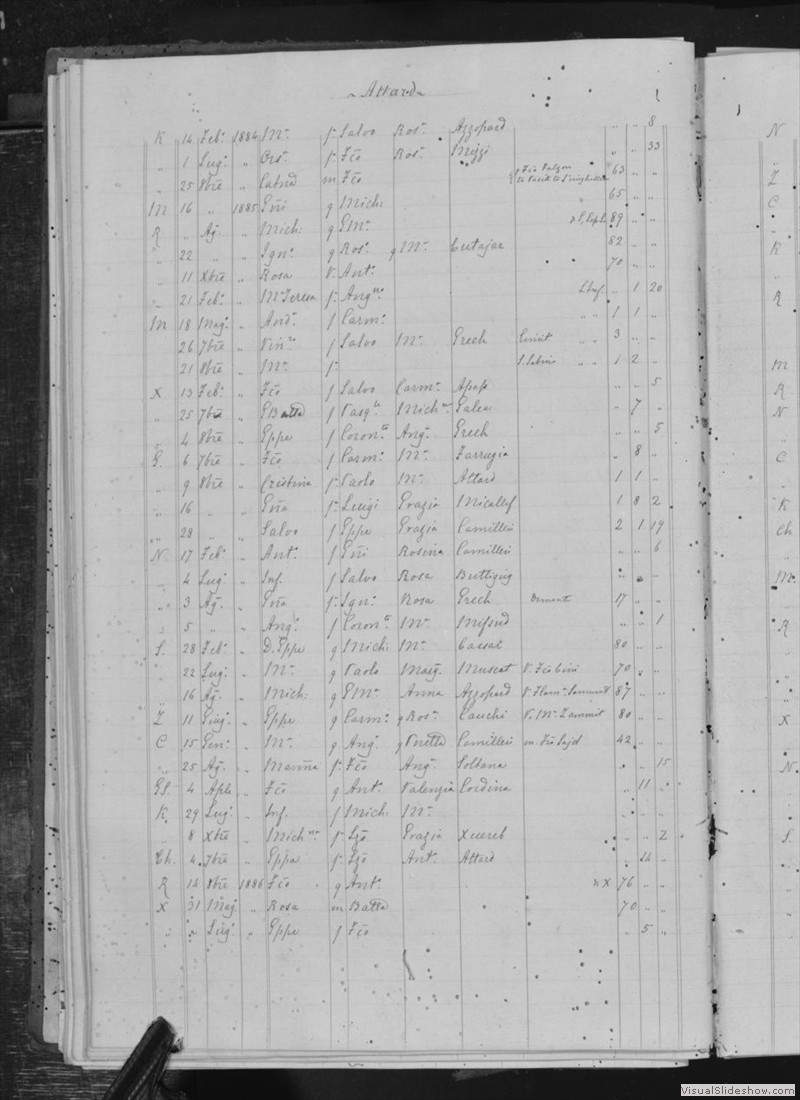 ~ Attard ~
K 14 Feb. 1884 Mª f. Salvo Ros. Azzopard „ „ 8
„ 1 Lug. „ Ors. f. Fcõ Ros. Mizzi „ „ 33
„ 25 8bre „ Catnd m Fcõ Fcõ Falzon 63 „ „
M 16 „ 1885 Gni g Mich. 65 „ „
R „ Ag. „ Mich. g GMª 89 „ „
„ 22 „ „ Ign. g Ros. g Mª Cutajar 82 „ „
„ 11 Xbre „ Rosa V. Ant. 70 „ „
„ 21 Feb. „ Mª Teresa f. Ang. „ 1 20
M 18 Mag. „ And. f Carm. „ „ 1 1 „
26 7bre „ f Salvo Mª Grech 3 „ „
21 8bre „ Mª f. „ „ 1 2 „
X 13 Feb. „ Fcõ f Salvo Carm. Apap „ „ 5
„ 25 7bre „ GBatta f Pasq. Mich. Galea „ 7 „
„ 4 8bre „ Gppe f Coron. Ang. Grech „ „ 5
G. 6 7bre „ Fcõ f Carm. Mª Farrugia „ 8 „
„ 9 8bre „ Cristina f. Paolo Mª Attard 1 1 „
„ 16 „ „ Gña f. Luigi Grazia Micallef 1 8 2
„ 28 „ „ Salvo f Gppe Grazia Camilleri 2 1 19
N. 17 Feb. „ Ant. f Gni Rosina Camilleri „ „ 6
„ 4 Lug. „ Inf. f Salvo Rosa Buttigieg „ „ „
„ 3 Ag. „ Gña f. Ign. Rosa Grech 17 „ „
„ 5 „ „ Ang. f Coron. Mª Mifsud „ „ 1
S. 28 Feb. „ D. Gppe g Mich. Mª Cassar 80 „ „
„ 22 Lug. „ Mª g Paolo Marg. Muscat 70 „ „
„ 16 Ag. „ Mich. g GMª Anna Azzopard 87 „ „
Z 11 Giug. „ Gppe g Carm. g Ros. Cauchi V. Mª Zammit 80 „ „
C 15 Gen. „ Mª g Ang. g Vnetta Camilleri 42 „ „
„ 25 Ag. „ f. Fcõ Ang. Soltana „ „ 15
GS. 4 Aple „ Fcõ g Ant. Valenzia Cordina „ 11 „
K 29 Lug. „ Inf. f Mich. Mª
„ 8 Xbre „ Mich. f. Grazia Xuereb „ „ 2
Ch. 4 7bre „ Gppa f. Ant. Attard „ 14 „
R 14 8bre 1886 Fcõ g Ant. X 76 „ „
X 31 Mag. „ Rosa m Batta 70 „ „
„ „ Lug. „ Gppe f Fcõ „ 5 „
N
Z
C
K
R
M
R
N
C
K
Ch
M.
R
X
N.
S.
VisualSlideshow.com